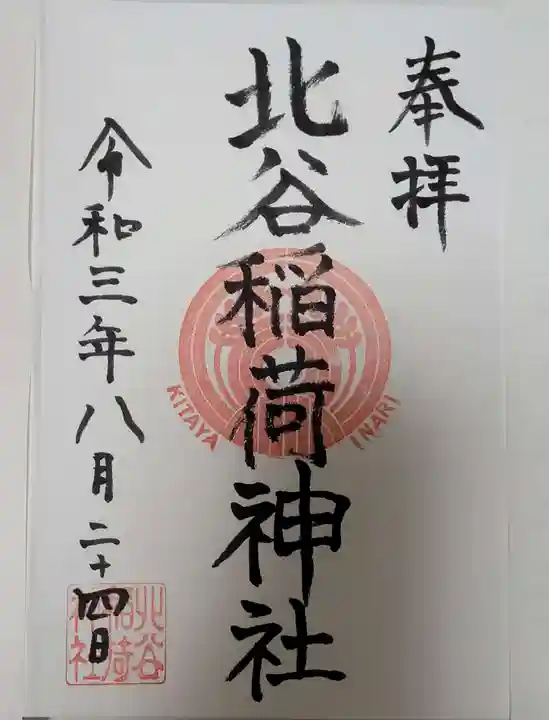 奉拝
北谷稲荷神社
KITAYA INARI
令和三年八月二十四日
北谷
稲荷
神社